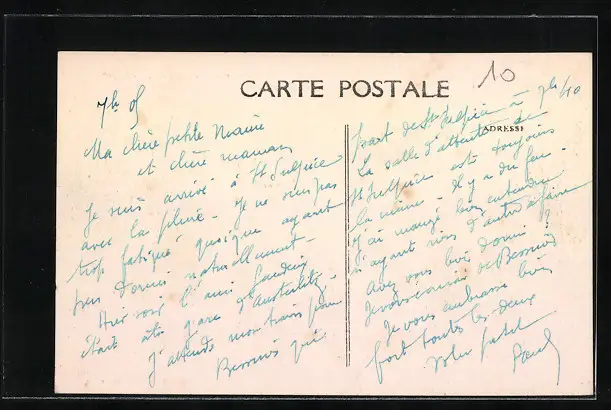 CARTE POSTALE
10
ADRESSE
7h 05
Ma chère petite Marie
et chère maman,
Je suis arrivé à St Sulpice
avec la pluie - Je ne suis pas
trop fatigué quoique ayant
peu dormi naturellement -
Hier soir l'ami Gaudin
était à la gare d'Austerlitz -
j'attends mon train pour
Bessines qui
part de St Sulpice à 7h 40
La salle d'attente de
St Sulpice est toujours
la même - Il y a du feu -
J'ai mangé bien entendu
n'ayant rien d'autre à faire
Avez vous bien dormi ?
Je vous écrirai de Bessines
Je vous embrasse bien
fort toutes les deux
votre petit
Paul